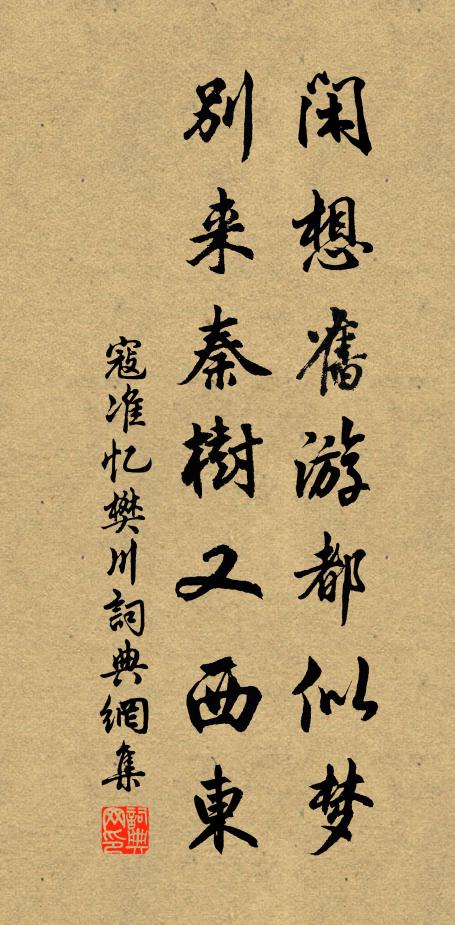 闲想舊游都似梦
别来秦樹又西東
寇准忆樊川詞典網集
詞典网印